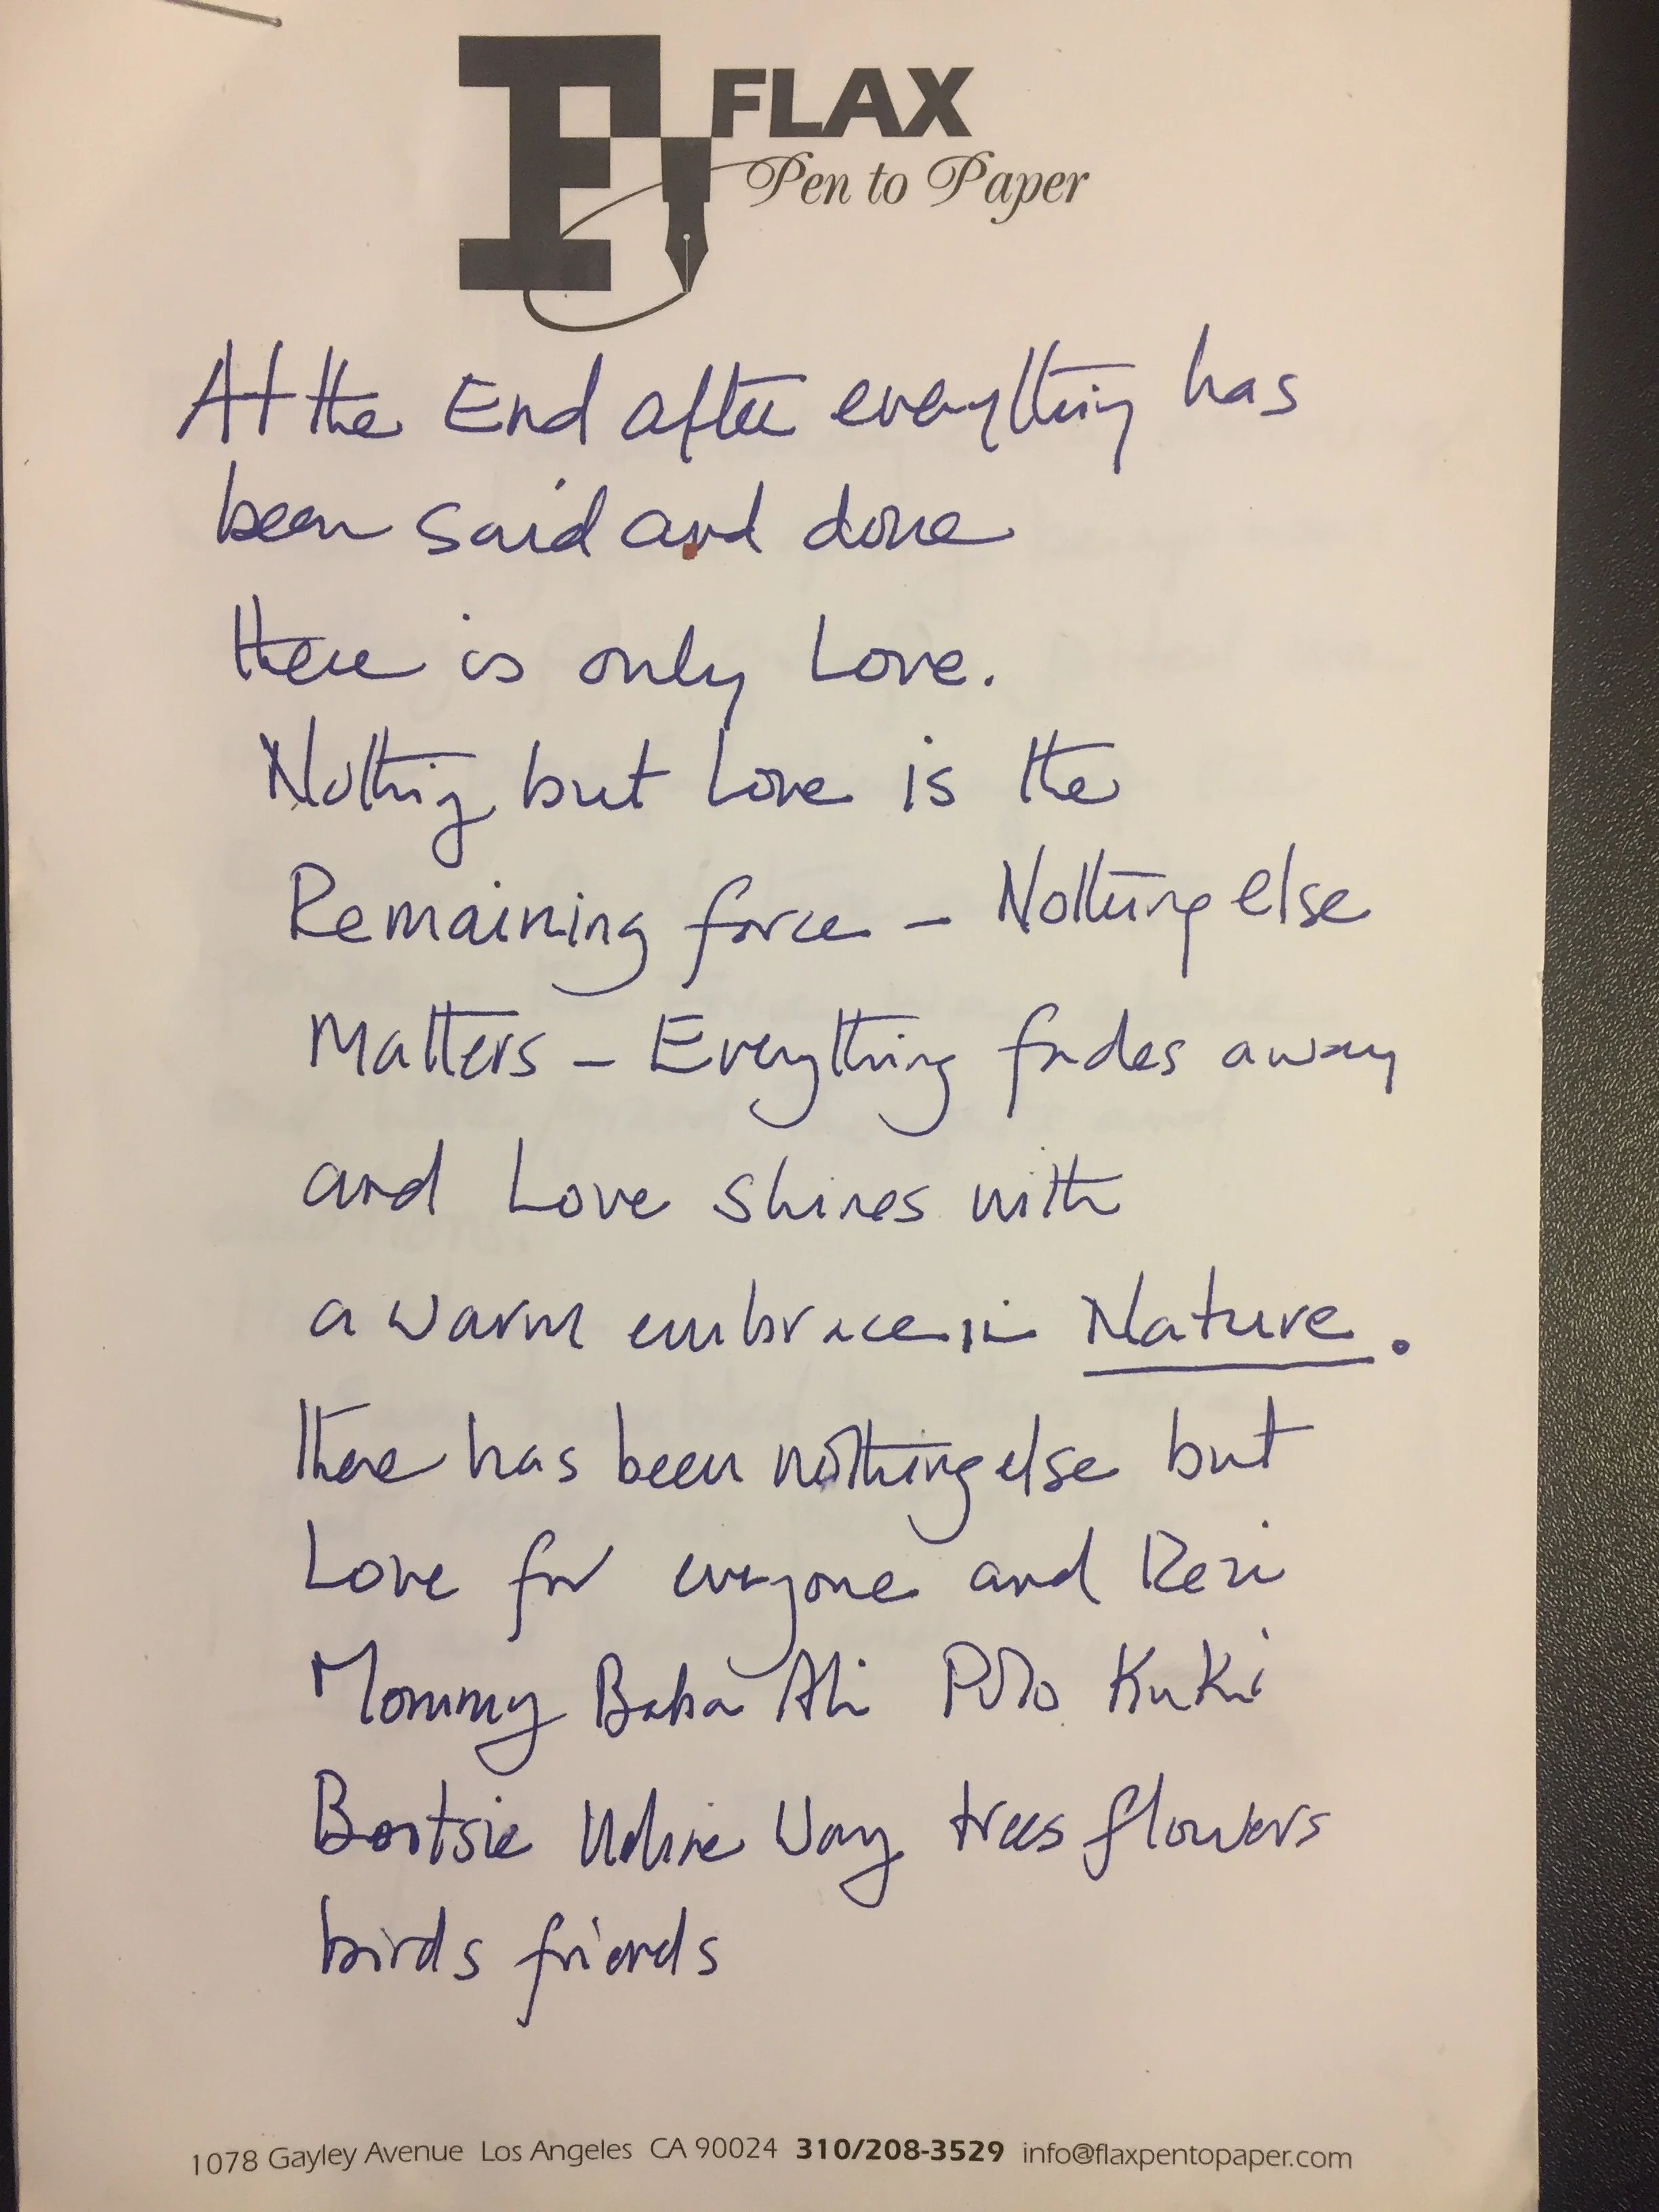 FLAX
Pen to Paper
At the End after everything has
been said and done
there is only Love.
Nothing but Love is the
Remaining force – Nothing else
Matters – Everything fades away
and Love shines with
a warm embrace in Nature.
There has been nothing else but
Love for everyone and
Mommy Baba Ali Polo Kuki
Bootsie Way trees flowers
birds friends
1078 Gayley Avenue Los Angeles CA 90024 310/208-3529 info@flaxpentopaper.com